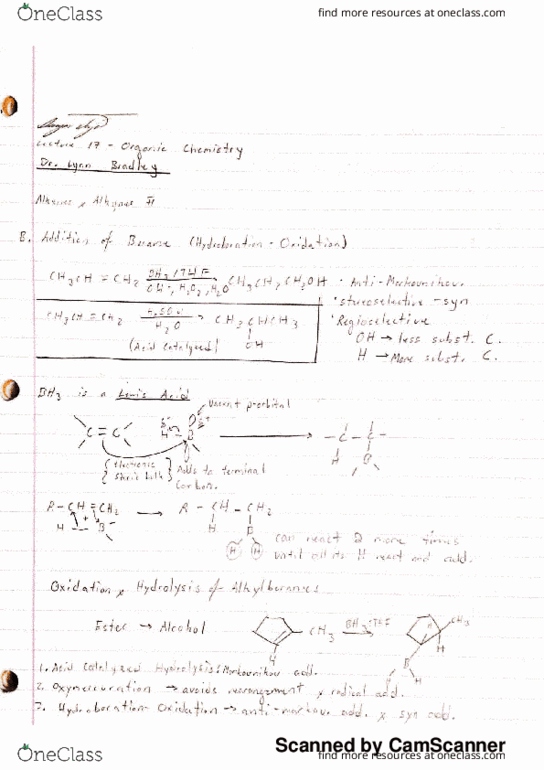 OneClass
find more resources at oneclass.com
Lecture 17 - Organic Chemistry
Dr. Lynn Bradley
Alkenes & Alkynes II
B. Addition of Borane (Hydroboration - Oxidation)
CH3CH = CH2 BH3/THF OH-, H2O2, H2O CH3CH2CH2OH · Anti-Markovnikov
· stereoselective - syn
CH3CH = CH2 H2SO4 H2O → CH3CHCH3
OH
(Acid Catalyzed)
· Regioselective
OH → less subst. C.
H → More subst. C.
BH3 is a Lewis Acid
Vacant p-orbital
C = C
H B
- C - C -
H B
{ Electronic steric bulk } Adds to terminal carbon.
R - CH = CH2 → R - CH - CH2
H B
H B
H H
can react 2 more times
until all its H react and add.
Oxidation & Hydrolysis of Alkylboranes
Ester → Alcohol
CH3 BH3·THF CH3
H
H
B
H
1. Acid Catalyzed Hydrolysis: Markovnikov add.
2. Oxymercuration → avoids rearrangement & radical add.
3. Hydroboration-Oxidation → anti-markov. add. & syn add.
Scanned by CamScanner
OneClass
find more resources at oneclass.com